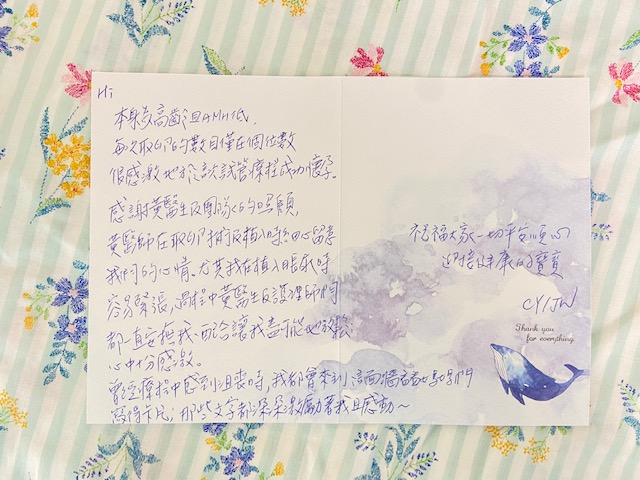 Hi
本身為高齡且AMH低,
每次取卵的數目僅在個位數
很感激地於 試管療程成功懷孕。
感謝黃醫生及團隊的照顧,
黃醫師在取卵手術及植入時細心留意
我們的心情,尤其我在植入 時
容易緊張,過程中黃醫生及護理師們
都一直安撫我、配合讓我盡可能地放鬆
心中十份感激。
曾經療程中感到沮喪時,我都會來到這面牆看看 學姐們
寫得卡片;那些文字都深深激勵著我且感動~
祝福大家一切平安順心
迎接健康的寶寶
CY/JW
Thank you
for everything.